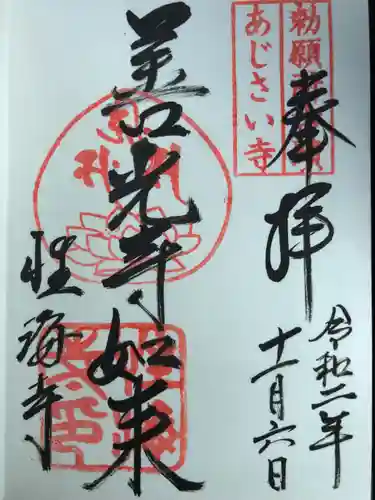 奉拝
令和二年
十一月六日
勅願
あじさい寺
善光寺如来
性海寺